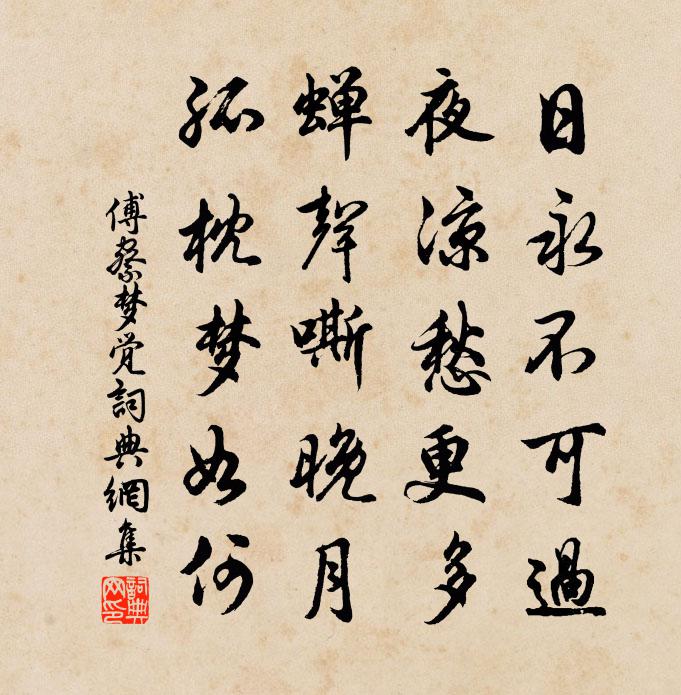 日永不可過
夜涼愁更多
蝉聲嘶晚月
孤枕梦如何
傅察梦覚詞典網集
詞典网印